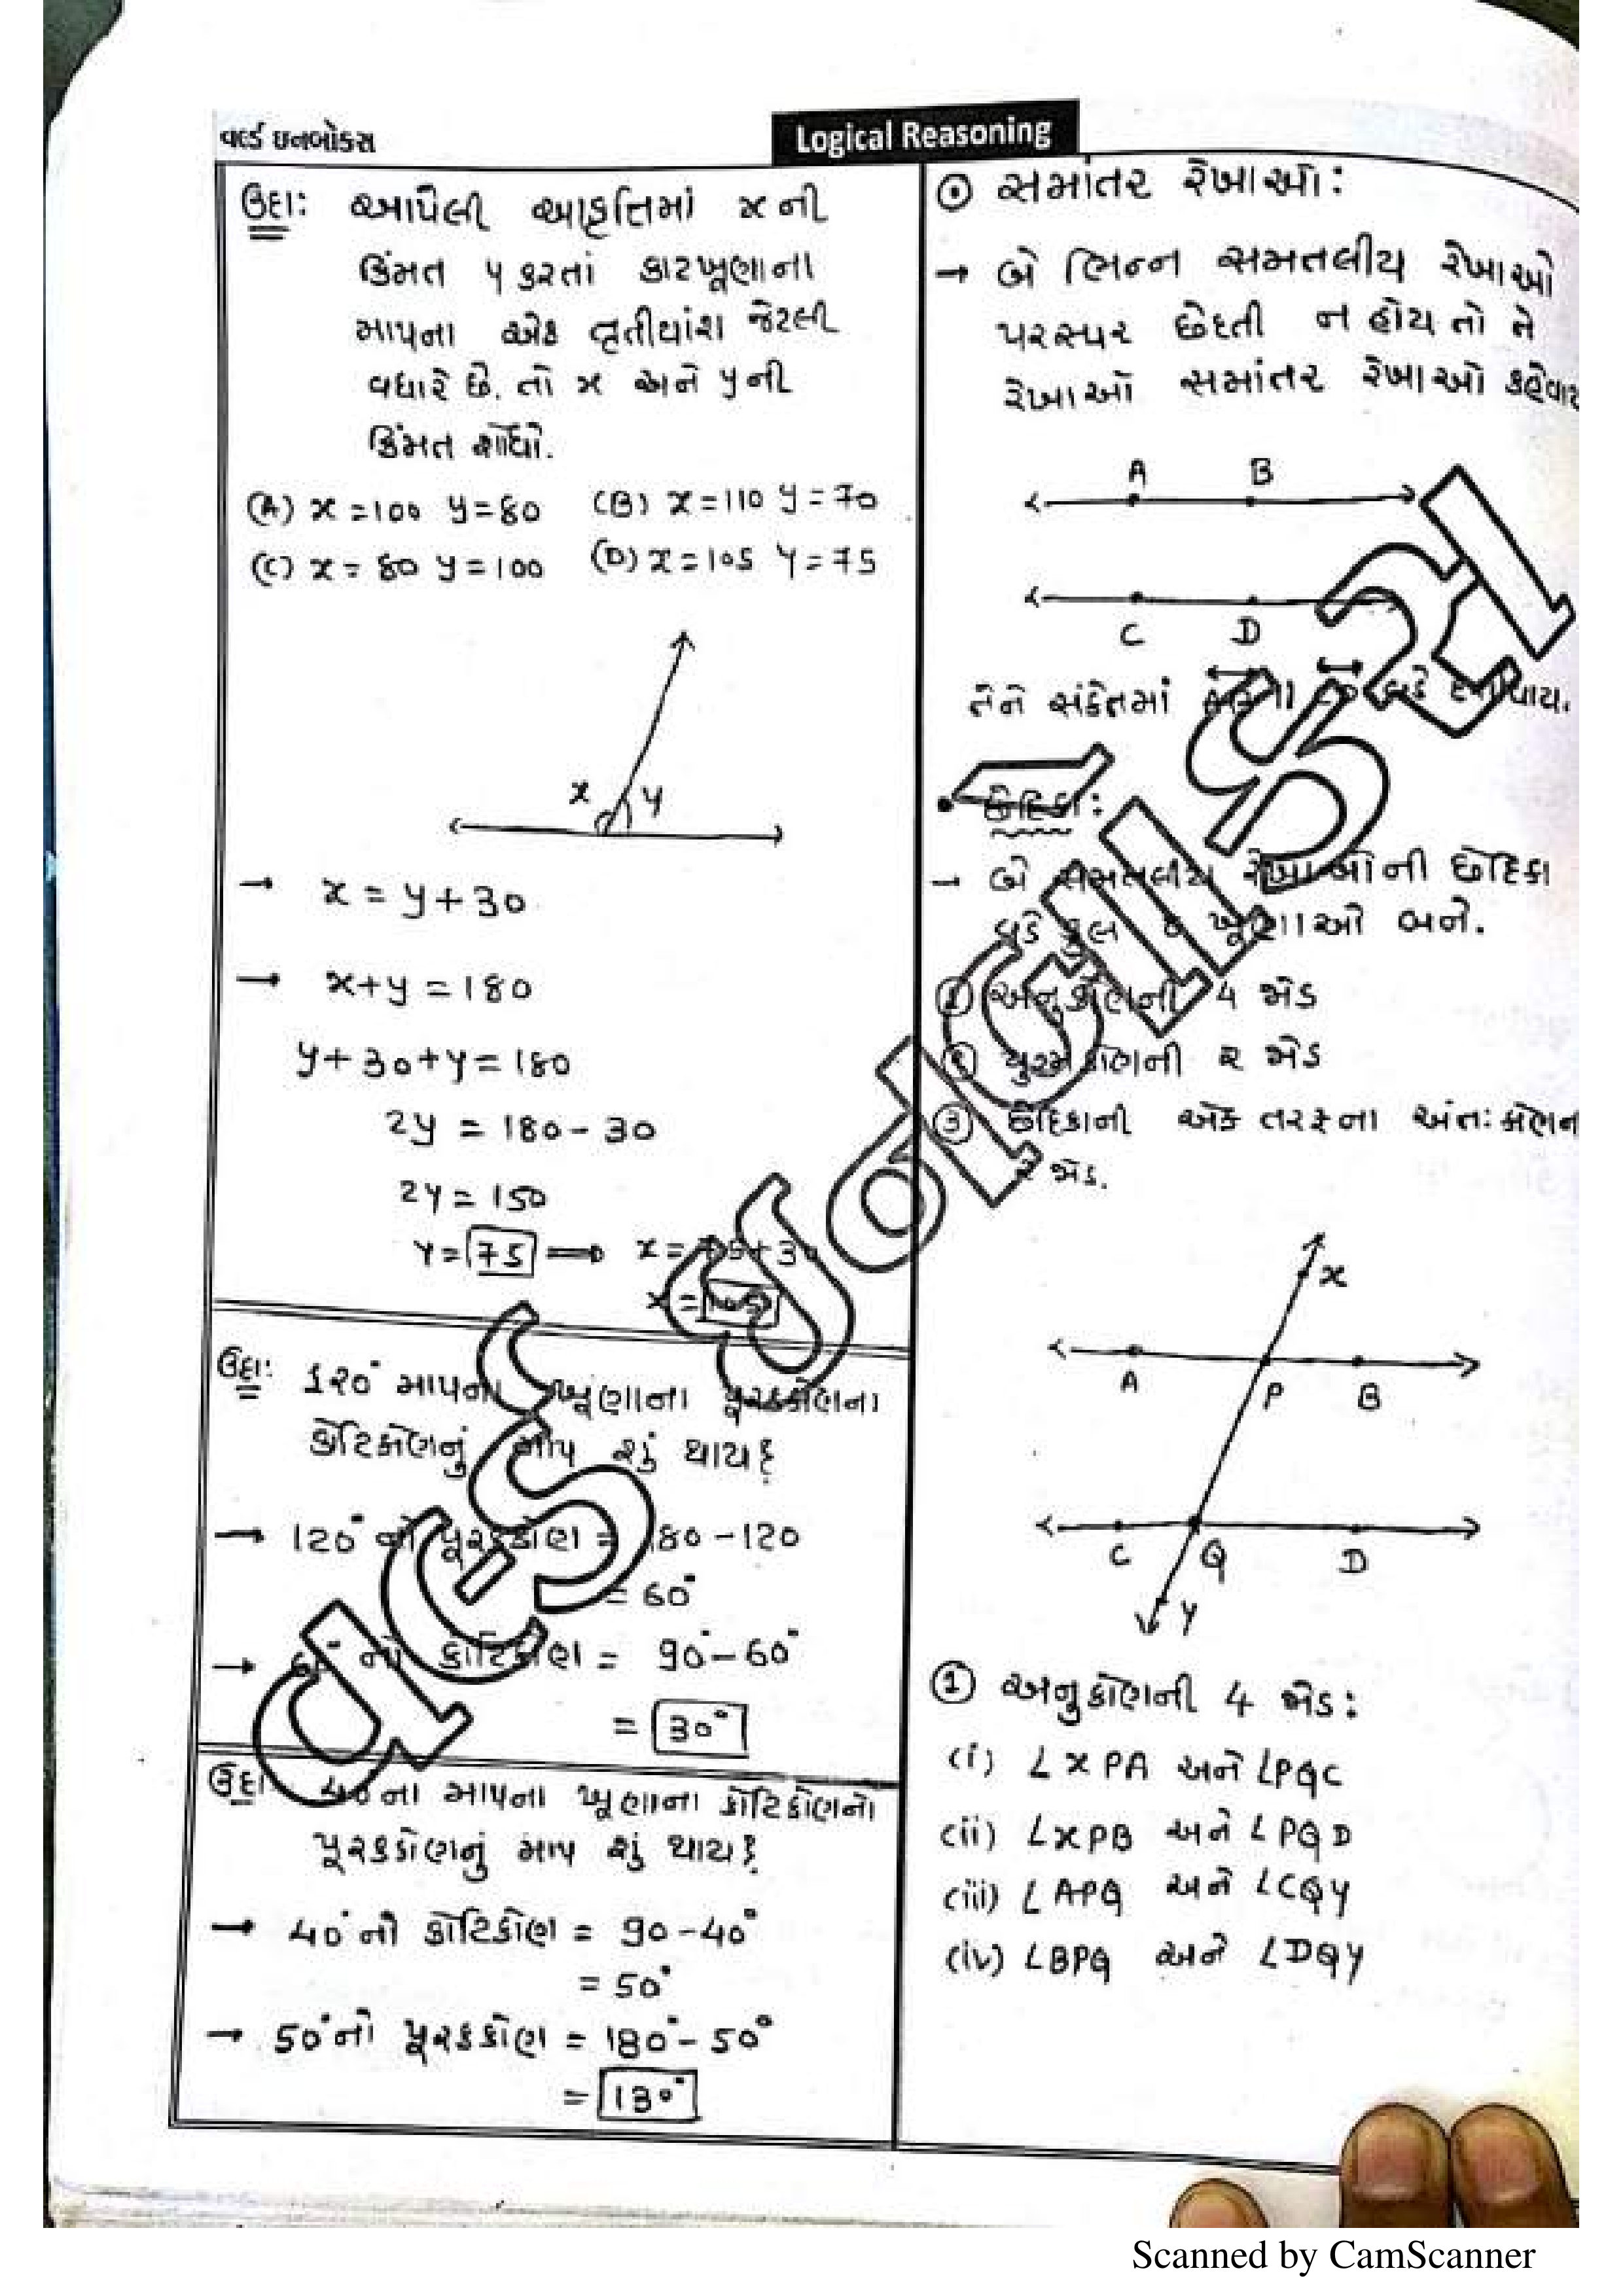 વર્લ્ડ ઇનબોક્સ
Logical Reasoning
ઉદા: આપેલી આકૃતિમાં x ની
કિંમત y કરતાં કાટખૂણાના
માપના એક તૃતીયાંશ જેટલી
વધારે છે. તો x અને y ની
કિંમત શોધો.
(A) x = 100 y = 80 (B) x = 110 y = 70
(C) x = 80 y = 100 (D) x = 105 y = 75
x y
→ x = y + 30
→ x + y = 180
y + 30 + y = 180
2y = 180 - 30
2y = 150
y = 75 ⟹ x = 75 + 30
x = 105
ઉદા: 120° માપના ખૂણાના પૂરકકોણના
કોટિકોણનું માપ શું થાય?
→ 120° નો પૂરકકોણ = 180 - 120
= 60°
→ 60° નો કોટિકોણ = 90° - 60°
= 30°
ઉદા 40 ના માપના ખૂણાના કોટિકોણનો
પૂરકકોણનું માપ શું થાય?
→ 40° નો કોટિકોણ = 90 - 40°
= 50°
→ 50° નો પૂરકકોણ = 180° - 50°
= 130°
સમાંતર રેખાઓ:
→ બે ભિન્ન સમતલીય રેખાઓ
પરસ્પર છેદતી ન હોય તો તે
રેખાઓ સમાંતર રેખાઓ કહેવાય
A B
C D
તેને સંકેતમાં વડે દર્શાવાય.
• છેદિકા:
→ બે સમતલીય રેખાઓની છેદિકા
વડે કુલ 8 ખૂણાઓ બને.
① અનુકોણની 4 જોડ
② યુગ્મકોણની 2 જોડ
③ છેદિકાની એક તરફના અંત:કોણન
2 જોડ.
x
A P B
C Q D
y
① અનુકોણની 4 જોડ:
(i) ∠XPA અને ∠PQC
(ii) ∠XPB અને ∠PQD
(iii) ∠APQ અને ∠CQY
(iv) ∠BPQ અને ∠DQY
Scanned by CamScanner